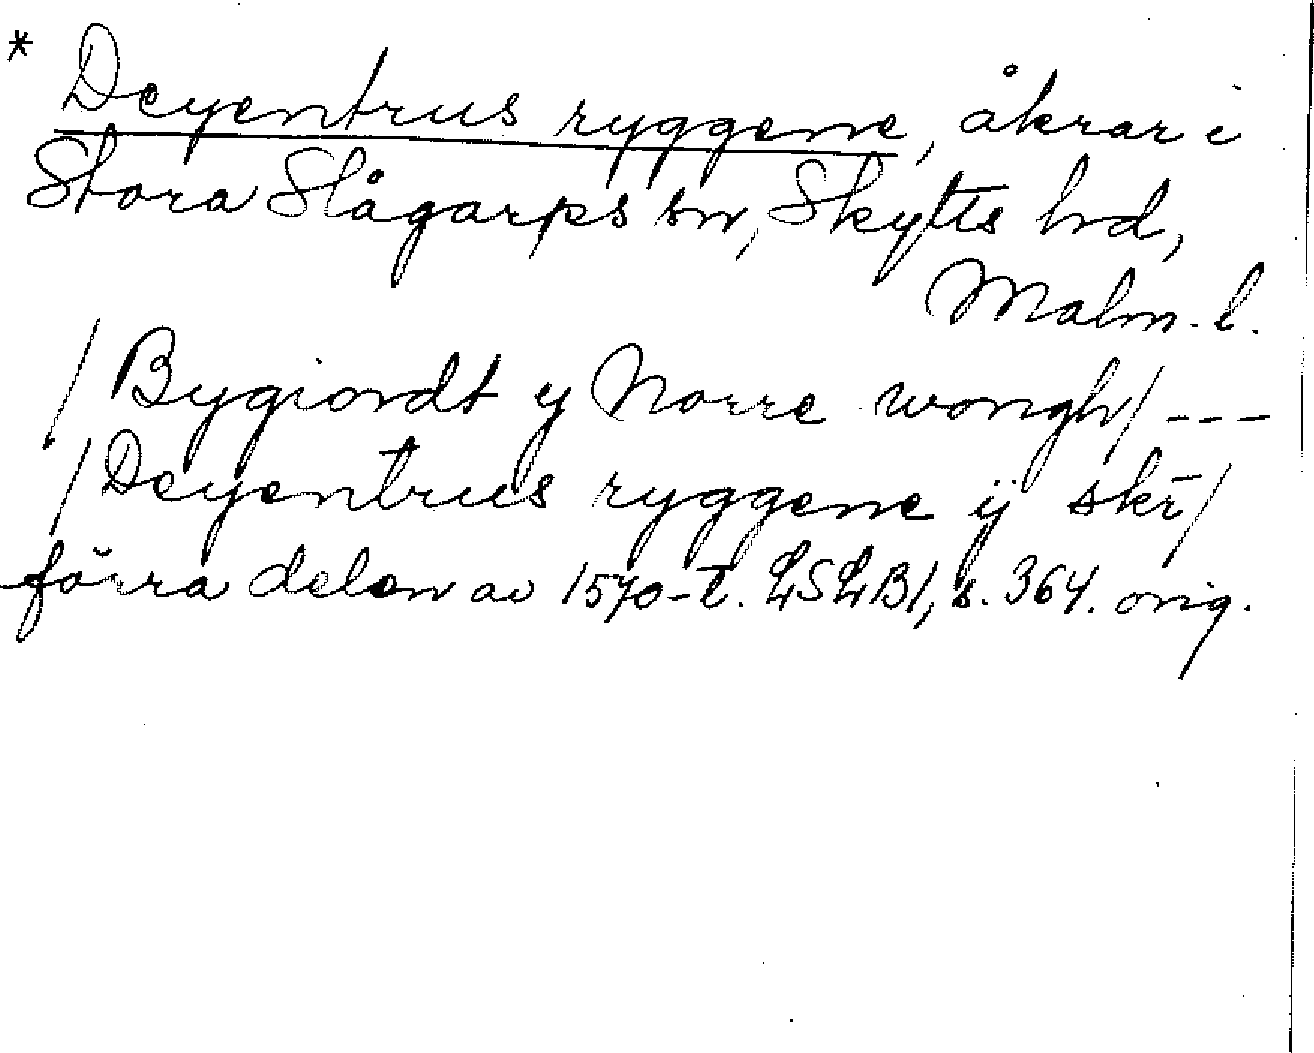 * Deyentrus ryggene, åkrar i
Stora Slågarps sn, Skytts hd,
Malm. l.
/Bygiordt y Norre wongh/ ---
/Deyentrus ryggene ÿ skr̄/
förra delen av 1570-t. LSLB1, s. 364. orig.